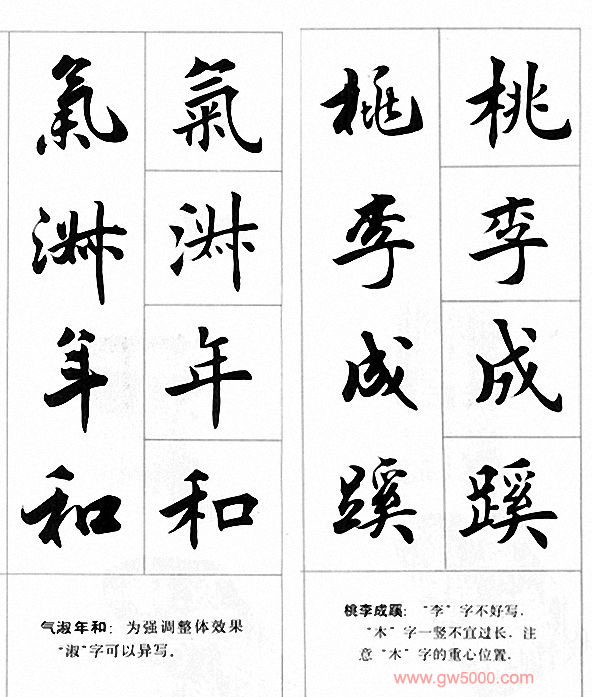 桃李成蹊
桃李成蹊
桃李成蹊：“李”字不好写．
“木”字一竖不宜过长．注
意“木”字的重心位置．
氣淑年和
氣淑年和
气淑年和：为强调整体效果
“淑”字可以异写．
www.gw5000.com